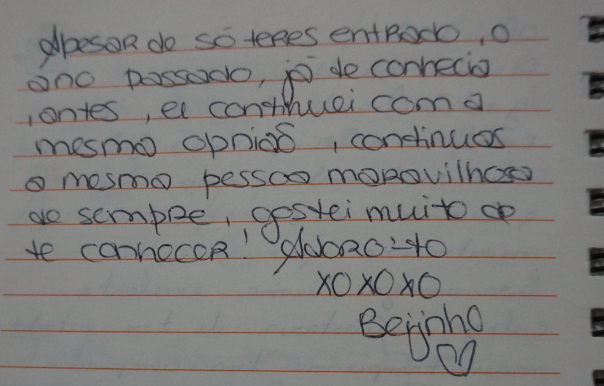 Apesar de só teres entrado, o
ano passado, já te conhecia
,antes, e continuei com a
mesma opnião, continuas
a mesma pessoa maravilhosa
de sempre, gostei muito de
te conhecer! Adoro-to
XOXOXO
Beijinho